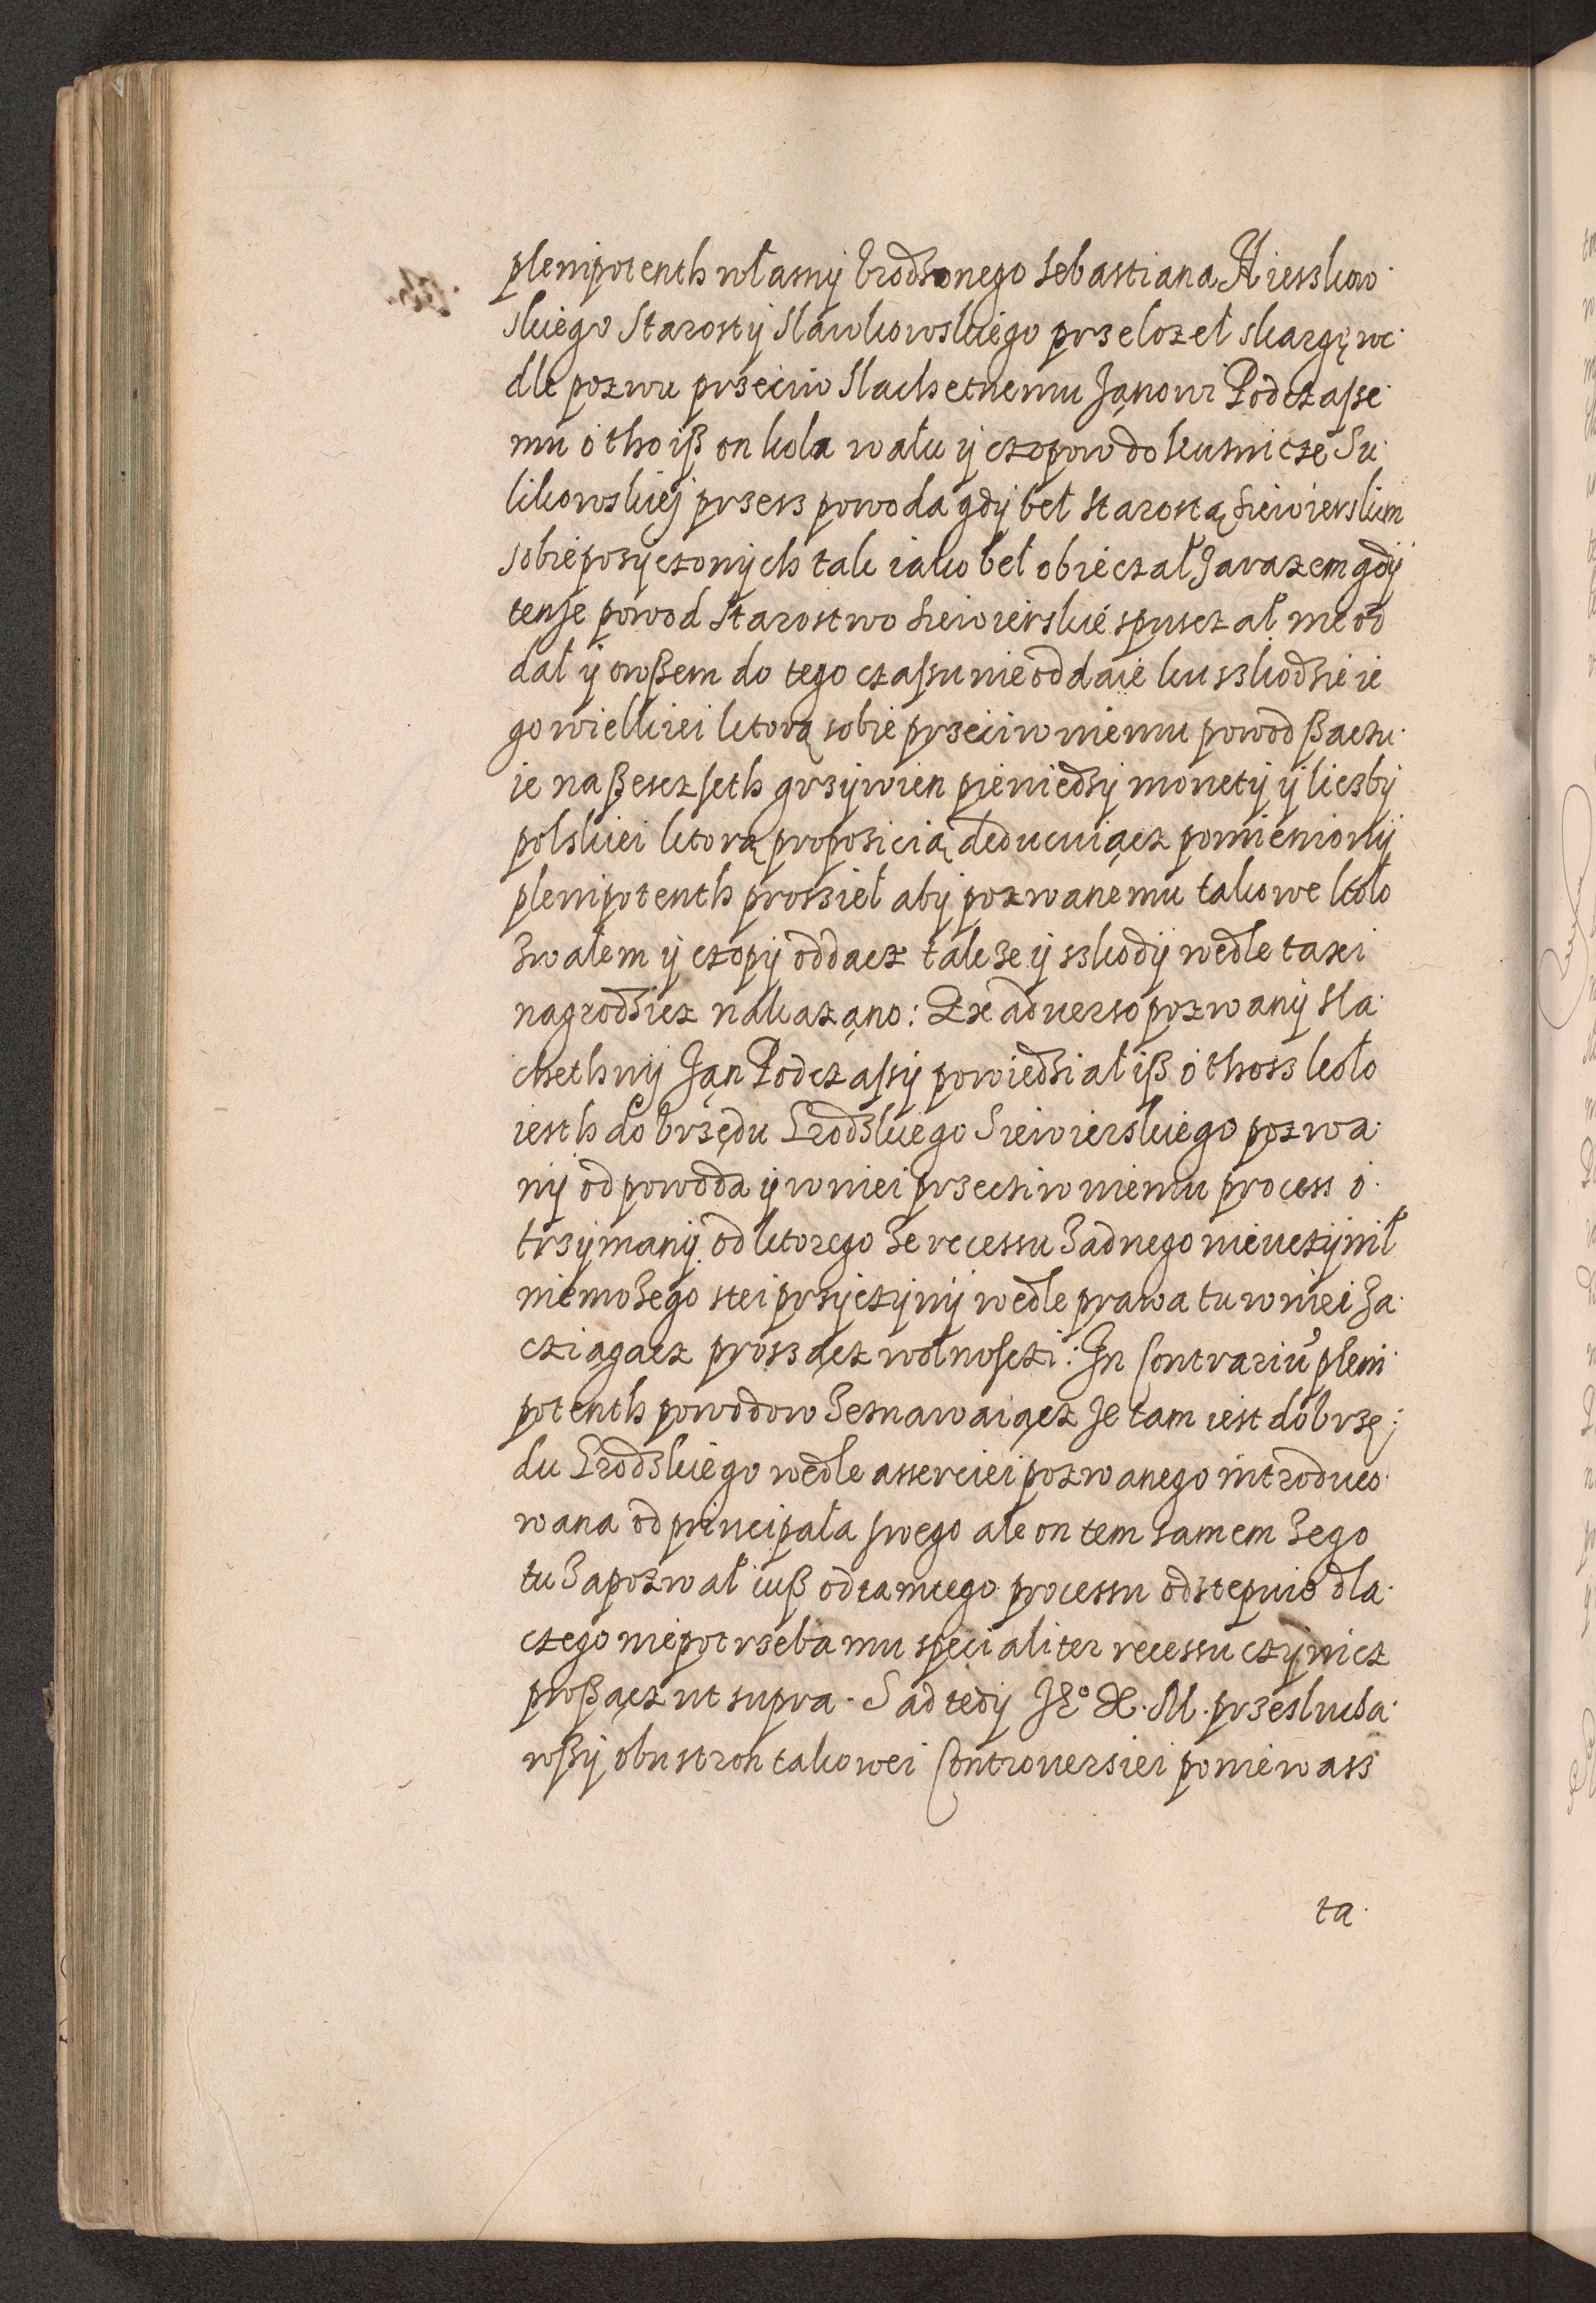 plenipotenth własnÿ Vrodzonego Sebastiana Kiesskow
skiego Starostÿ Slawkowskiego przelozeł skargę we
dle pozwu przeciw Slachetnemu Janowi Podczasse
mu o tho iß on kola wału ÿ czopow do kusnicze Su
likowskiej przess powoda gdÿ beł Starostą Siewierskim
sobie posÿczonÿch tak iako beł obieczał zarazem gdÿ
tense powod Starostwo Siewierskie spusczał nie od
dał ÿ owßem do tego czassu nie oddaie ku sskodzie ie
go wielkiei ktorą sobie przeciw niemu powod ßaczu
ie na ßescz seth grzÿwien pieniedzÿ monetÿ ÿ liczbÿ
polskiei ktorą proposicią deducuiącz pomienionÿ
plenipotenth prossieł abÿ pozwanemu takowe koło
z wałem ÿ czopÿ oddacz takze ÿ sskodÿ wedle taxi
nagrodzicz nakazano: Ex aduerso pozwanÿ Sla
chethnÿ Jan Podczassÿ powiedział iß o thoss koło
iesth do Vrzędu Grodzkiego Siewierskiego pozwa
nÿ od powoda ÿ w niei przecziw niemu process o
trzÿmanÿ od ktorego ze recessu zadnego nie uczÿnił
nie moze go stei przÿczÿnÿ wedle prawa tu w niei za
cziagacz prosząc wolnosczi: In Contrariu pleni
potenth powodow zeznawaiącz ze tam iest do Vrzę
du Grodzkiego wedle asserciei pozwanego introduco
wana od principała swego ale on tem samem ze go
tu zapozwał iuß od tamtego processu odstepuie dla
czego nie potrzeba mu specialiter recessu czÿnicz
proßącz ut supra. Sad tedÿ Je° X. M. przesłucha
wßÿ obu stron takowei Controuersiei poniewass
ta